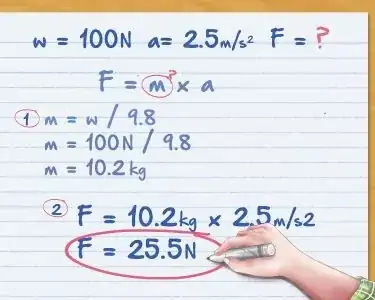 w = 100N a= 2.5m/s² F = ?
F = m? x a
1 m = w / 9.8
m = 100N / 9.8
m = 10.2kg
2 F = 10.2kg x 2.5m/s2
F = 25.5N